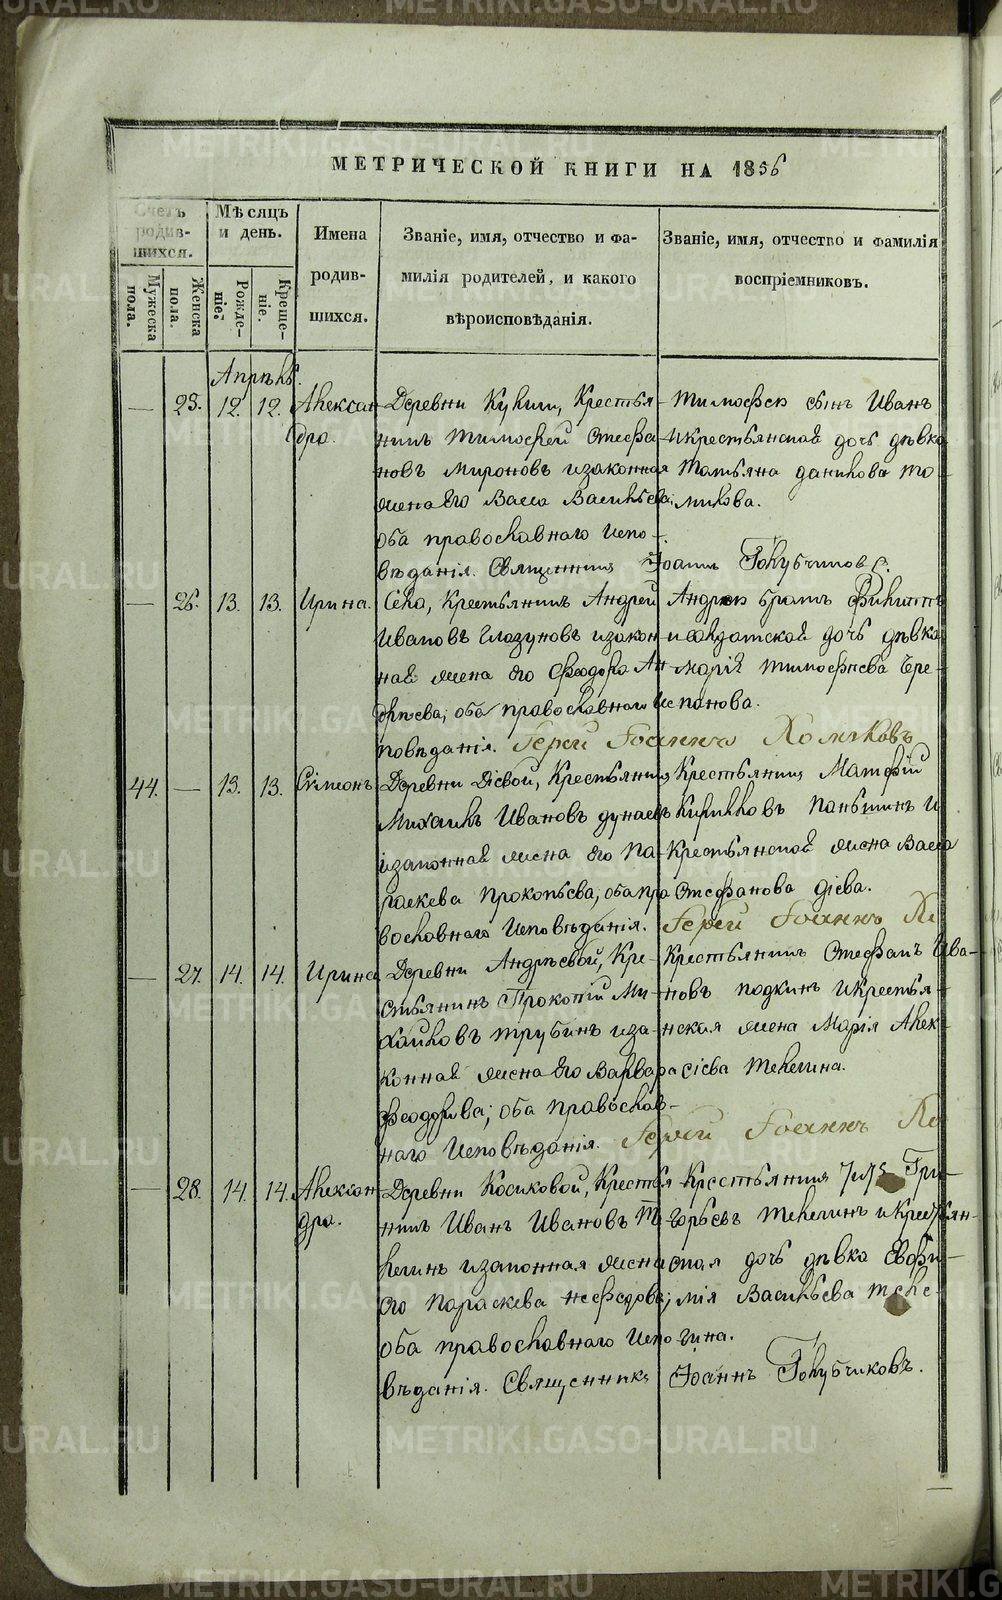 METRIKI.GASO-URAL.RU
МЕТРИЧЕСКОЙ КНИГИ НА 1856
Счетъ родив-шихся.
Мужеска пола.
Женска пола.
Мѣсяцъ и день.
Рожде-ніе.
Креще-ніе.
Имена родив-шихся.
Званіе, имя, отчество и фа-
милія родителей, и какого
вѣроисповѣданія.
Званіе, имя, отчество и фамилія
воспріемниковъ.
Апрѣль.
— 12. 12. Алексан-
дра.
Деревни Крестья-
нинъ Тимофей Стефа-
новъ Мироновъ и законная
жена его Васса Васильева;
оба православнаго испо-
вѣданія. Священникъ Іоаннъ Голубчиковъ.
Тимофея сынъ Иванъ
и крестьянская дочь дѣвка
Татьяна Данилова То-
милова.
— 26. 13. 13. Ирина.
Села, Крестьянинъ Андрей
Ивановъ Глазуновъ и закон-
ная жена его Феодора Ан-
дреева; оба православнаго ис-
повѣданія. Іерей Іоаннъ Хомяковъ
Андрея братъ Филиппъ
и солдатской дочь дѣвка
Марія Тимофеева Чере-
панова.
44. — 13. 13. Симеонъ
Деревни Дѣевой, Крестьянинъ
Михаилъ Ивановъ Дунаевъ
и законная жена его Па-
раскева Прокопьева; оба пра-
вославнаго исповѣданія. Іерей Іоаннъ Хо
Крестьянинъ Матфій
Кирилловъ Паньшинъ и
Крестьянской жена Васса
Стефанова Дѣева.
— 27. 14. 14. Ирина
Деревни Андреевой, Кре-
стьянинъ Прокопій Ми-
хайловъ Трубинъ и за-
конная жена его Варвара
Феодорова; оба православ-
наго исповѣданія. Іерей Іоаннъ Хо
Крестьянинъ Стефанъ Ива-
новъ и крестья-
нская жена Марія Алек-
сіева Телегина.
— 28. 14. 14. Алексан-
дра.
Деревни Косиковой, Крестья-
нинъ Иванъ Ивановъ Те-
легинъ и законная жена
его Параскева Нефедова;
оба православнаго испо-
вѣданія. Священникъ Іоаннъ Голубчиковъ.
Крестьянинъ Гри-
горьевъ Телегинъ и Крестьян-
ская дочь дѣвка Евфи-
мія Васильева Теле-
гина.